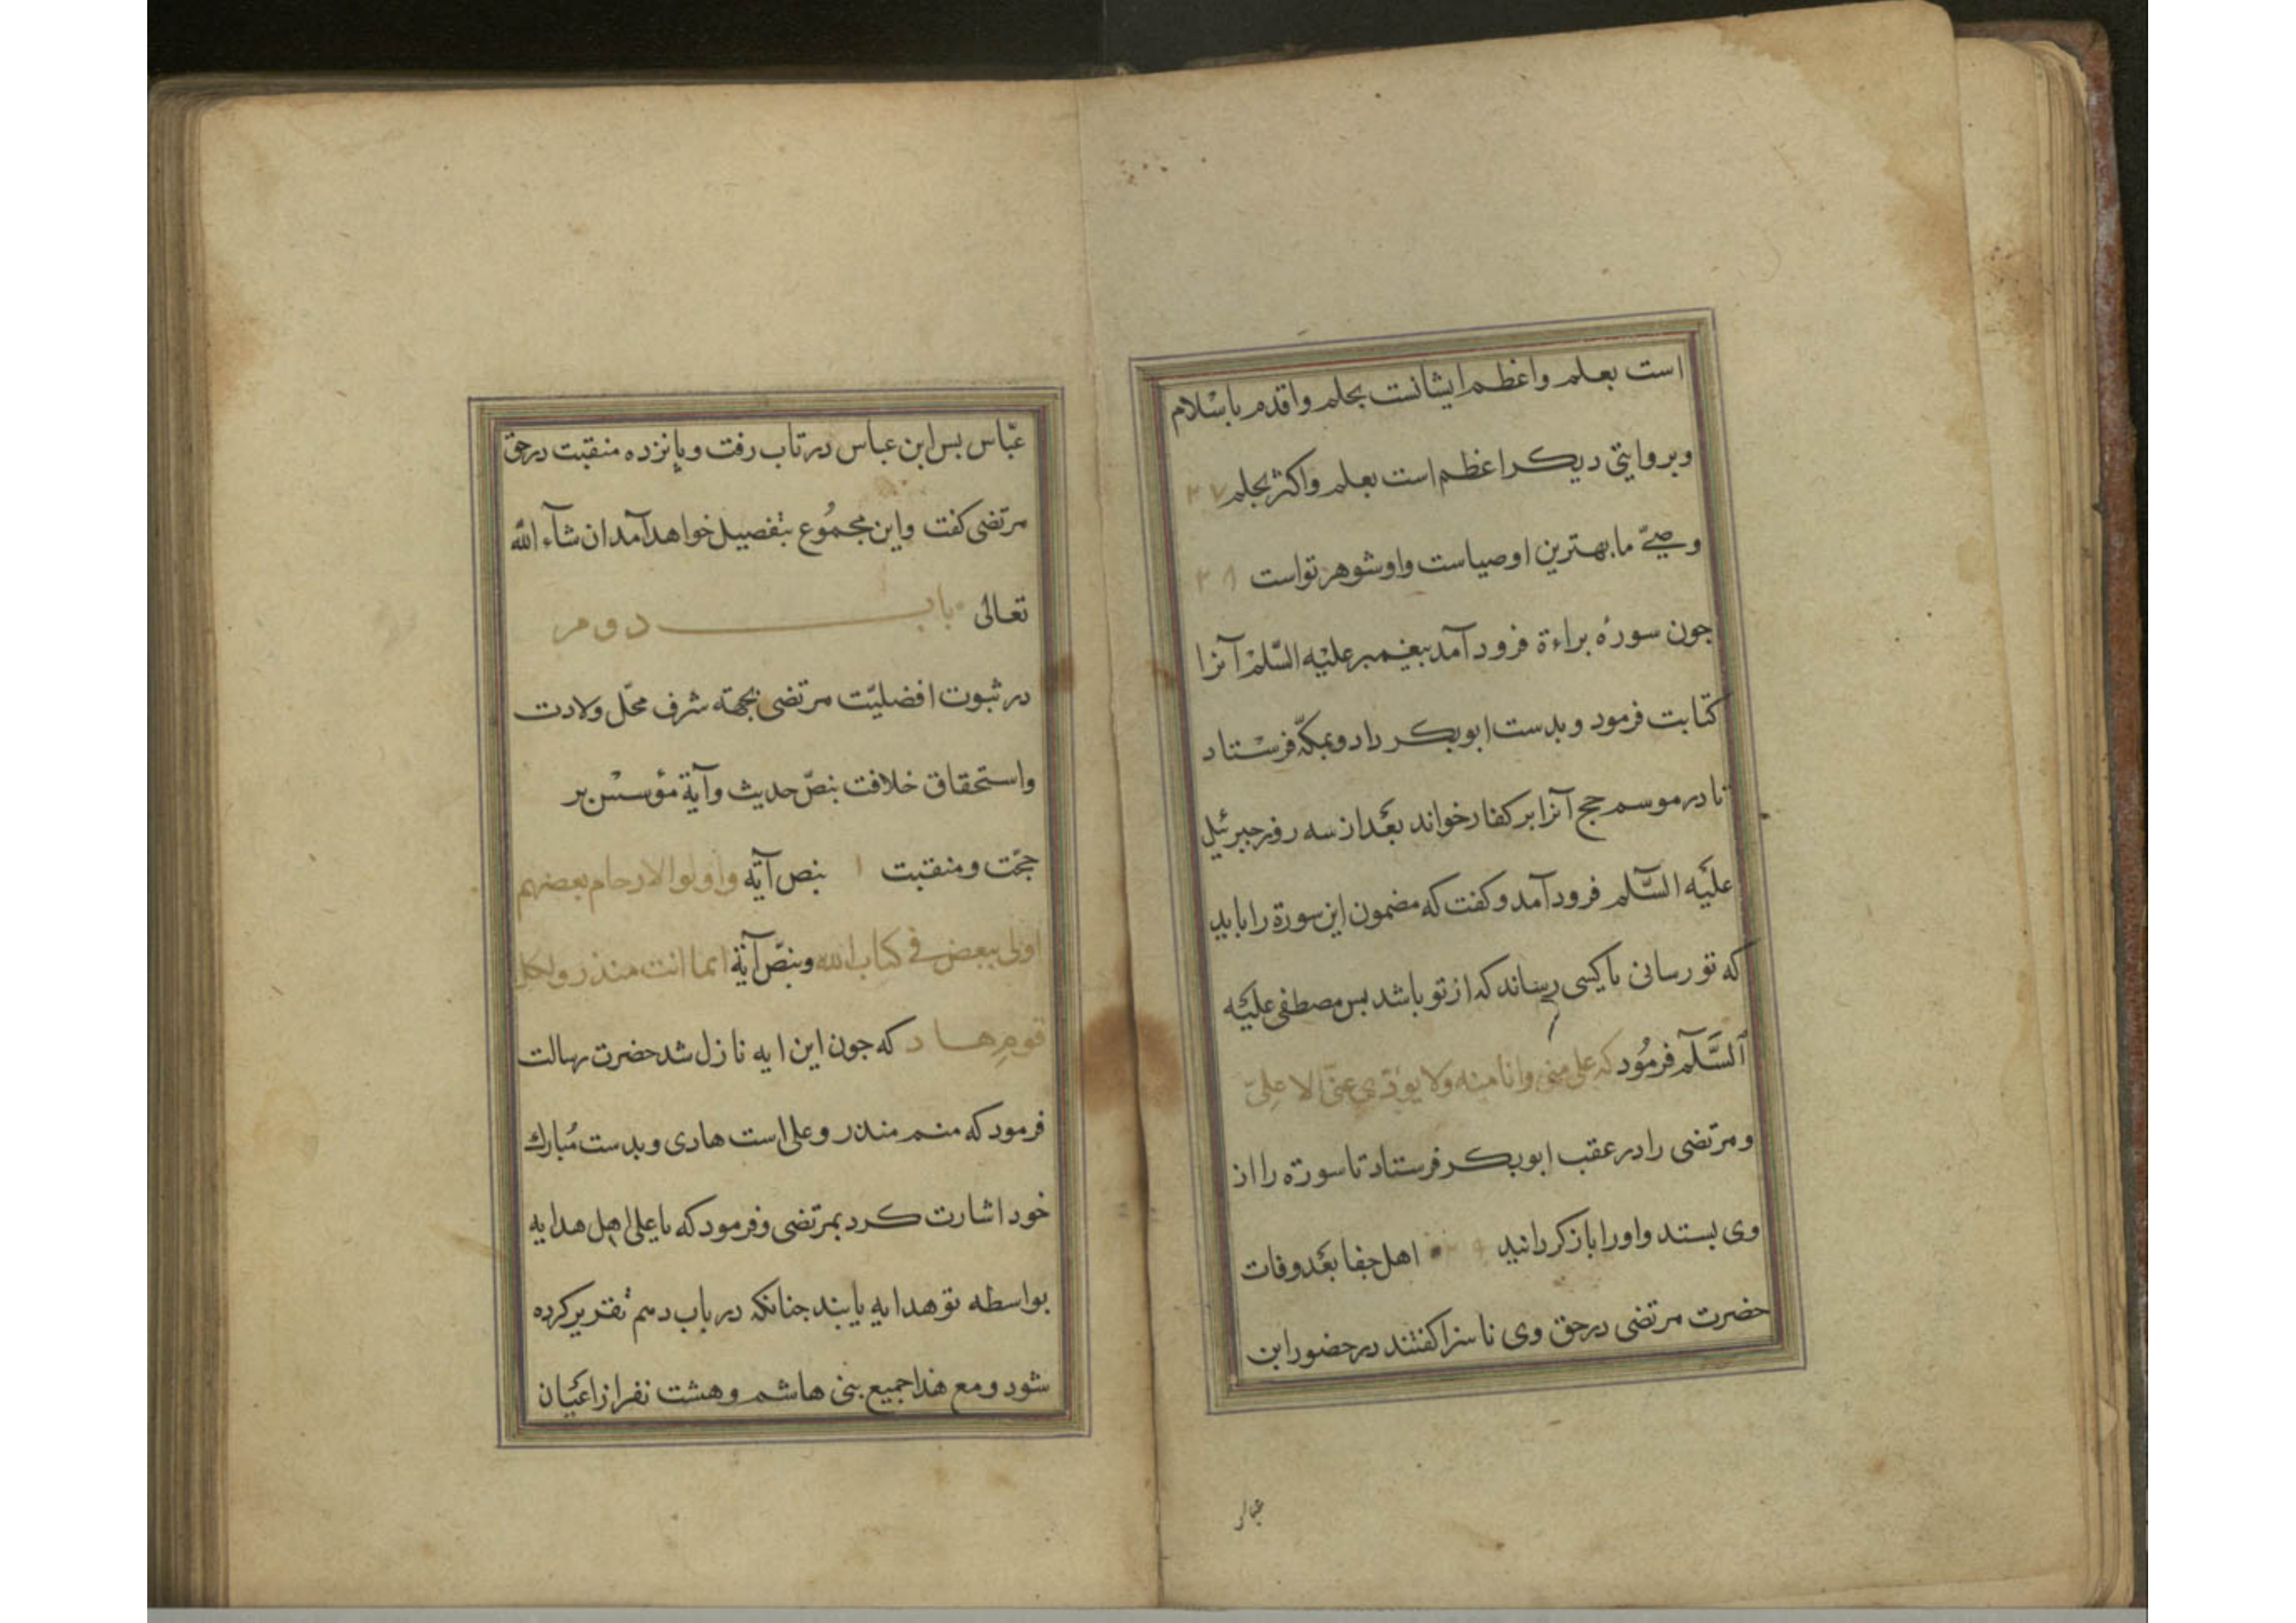 است بعلم واعظم ایشانست بحلم واقدم باسْلام
وبروایتی دیکر اعظم است بعلم واکثر بحلم ۲۷
وصیّ ما بهترین اوصیاست واو شوهر تواست ۲۸
جون سورهٔ براءة فرود آمد بیغیمبر علیْه السّلمْ آنرا
کتابت فرمود و بدست ابوبکر داد وبمکّه فرسْتاد
تا در موسم حج آنرا بر کفار خواند بعْد از سه روز جبرئیل
علیْه السَّلم فرود آمد وکفت که مضمون این سورة را باید
که تو رسانی یا کسی رساند که از تو باشد بس مصطفی علیْه
ٱلسَّلٓم فرمُود که علی منی وانا منه ولا یؤدّی عنّی الا علیّ
ومرتضی را در عقب ابوبکر فرستاد تا سورة را از
وی بستد واورا باز کردانید اهل جفا بعْد وفات
حضرت مرتضی در حق وی ناسزا کفتند در حضور ابن
عباس
عبّاس بس ابن عباس در تاب رفت وپانزده منقبت در حق
مرتضی کفت واین مجمُوع بتفصیل خواهد آمد ان شآء الله
تعالی باب دوم
در ثبوت افضلیّت مرتضی بجهة شرف محّل ولادت
واستحقاق خلافت بنصّ حدیث وآیة مؤسسْ بر
حجّت ومنقبت ۱ بنص آیة واولوا الارحام بعضهم
اولی ببعض فی کتاب الله وبنصّ آیة انما انت منذر ولکل
قومٍ هاد که جون این ایه نازل شد حضرت رسالت
فرمود که منم منذر وعلی است هادی وبدست مُبارك
خود اشارت کرد بمرتضی وفرمود که یا علی اهل هدایه
بواسطه تو هدایه یابند جنانکه در باب دهم تقریر کرده
شود ومع هذا جمیع بنی هاشم وهشت نفر از اعْیان